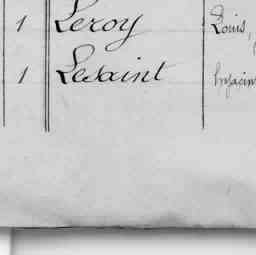 1 Leroy Louis,
1 Lesaint hyacin